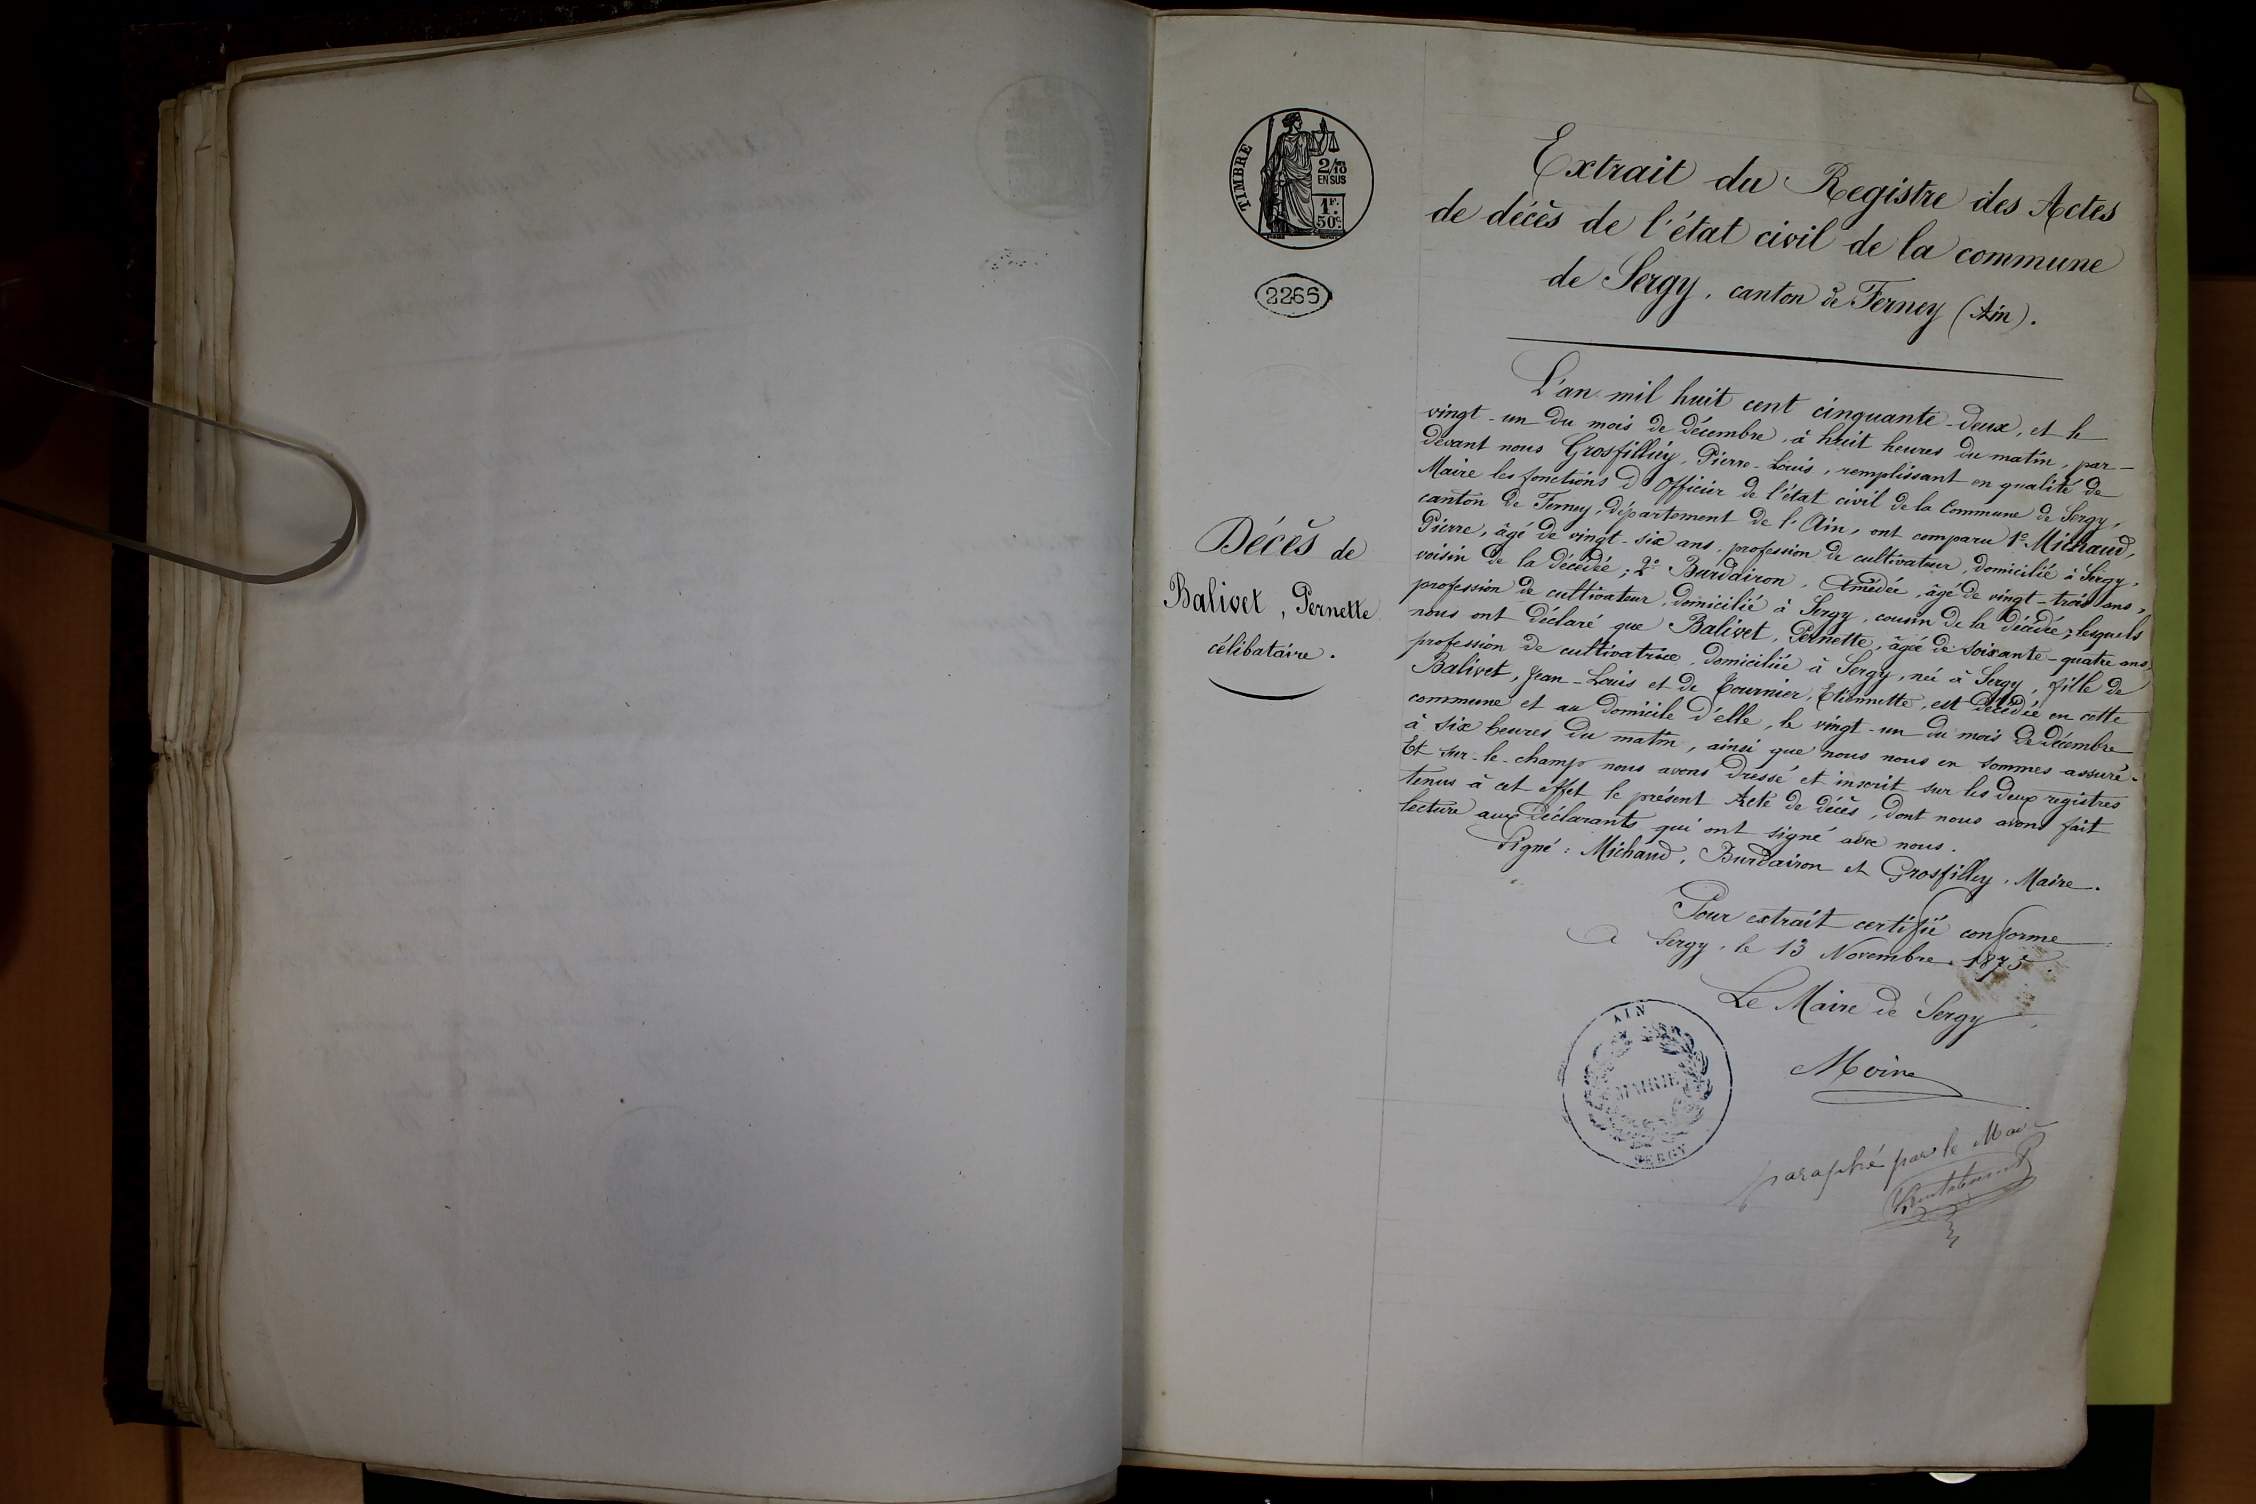 TIMBRE
2/10
EN SUS
1F.
50c.
2266
Extrait du Registre des Actes
de décès de l'état civil de la commune
de Sergy, canton de Ferney (Ain).
Décès de
Balivet, Pernette
célibataire.
L'an mil huit cent cinquante-deux, et le
vingt-un du mois de décembre, à huit heures du matin, par-
devant nous Grosfilliey, Pierre-Louis, remplissant en qualité de
Maire les fonctions d'Officier de l'état civil de la Commune de Sergy,
canton de Ferney, département de l'Ain, ont comparu 1° Michaud,
Pierre, âgé de vingt-six ans, profession de cultivateur, domicilié à Sergy,
voisin de la décédée; 2° Burdairon, Amédée, âgé de vingt-trois ans,
profession de cultivateur, domicilié à Sergy, cousin de la décédée; lesquels
nous ont déclaré que Balivet, Pernette, âgée de soixante-quatre ans,
profession de cultivatrice, domiciliée à Sergy, née à Sergy, fille de
Balivet, Jean-Louis et de Tournier, Etiennette, est décédée en cette
commune et au domicile d'elle, le vingt-un du mois de décembre
à six heures du matin, ainsi que nous nous en sommes assuré.
Et sur-le-champ nous avons dressé et inscrit sur les deux registres
tenus à cet effet le présent Acte de décès, dont nous avons fait
lecture aux déclarants qui ont signé avec nous.
Signé: Michaud, Burdairon et Grosfilley, Maire.
Pour extrait certifié conforme
A Sergy, le 13 Novembre 1875.
Le Maire de Sergy
Moine
AIN
MAIRIE
SERGY
paraphé par le Maire